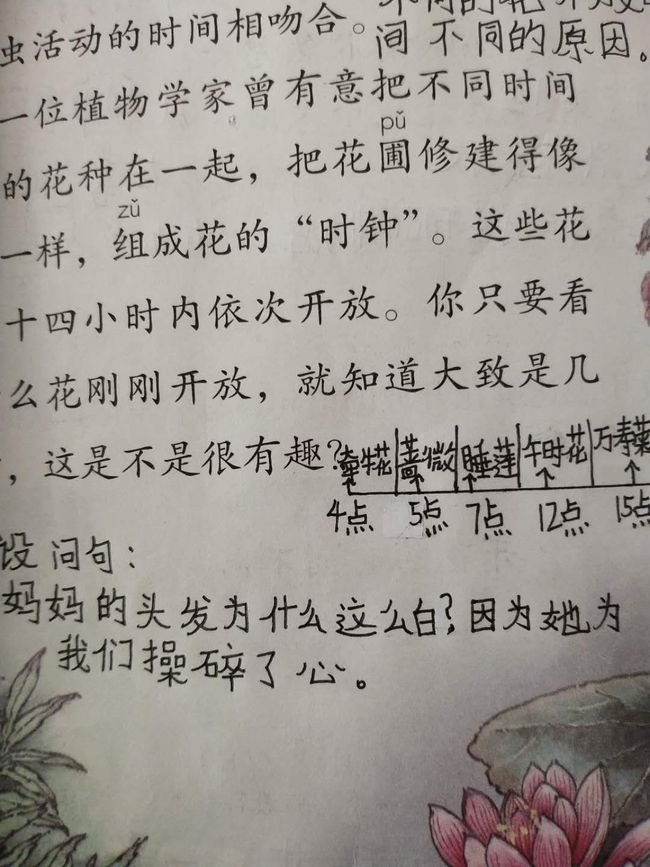 虫活动的时间相吻合。
间 不同的原因。
一位植物学家曾有意把不同时间
pǔ
的花种在一起，把花圃修建得像
zǔ
一样，组成花的“时钟”。这些花
十四小时内依次开放。你只要看
么花刚刚开放，就知道大致是几
，这是不是很有趣?
牵牛花 蔷薇 睡莲 午时花 万寿菊
4点 5点 7点 12点 15点
设问句：
妈妈的头发为什么这么白？因为她为
我们操碎了心。